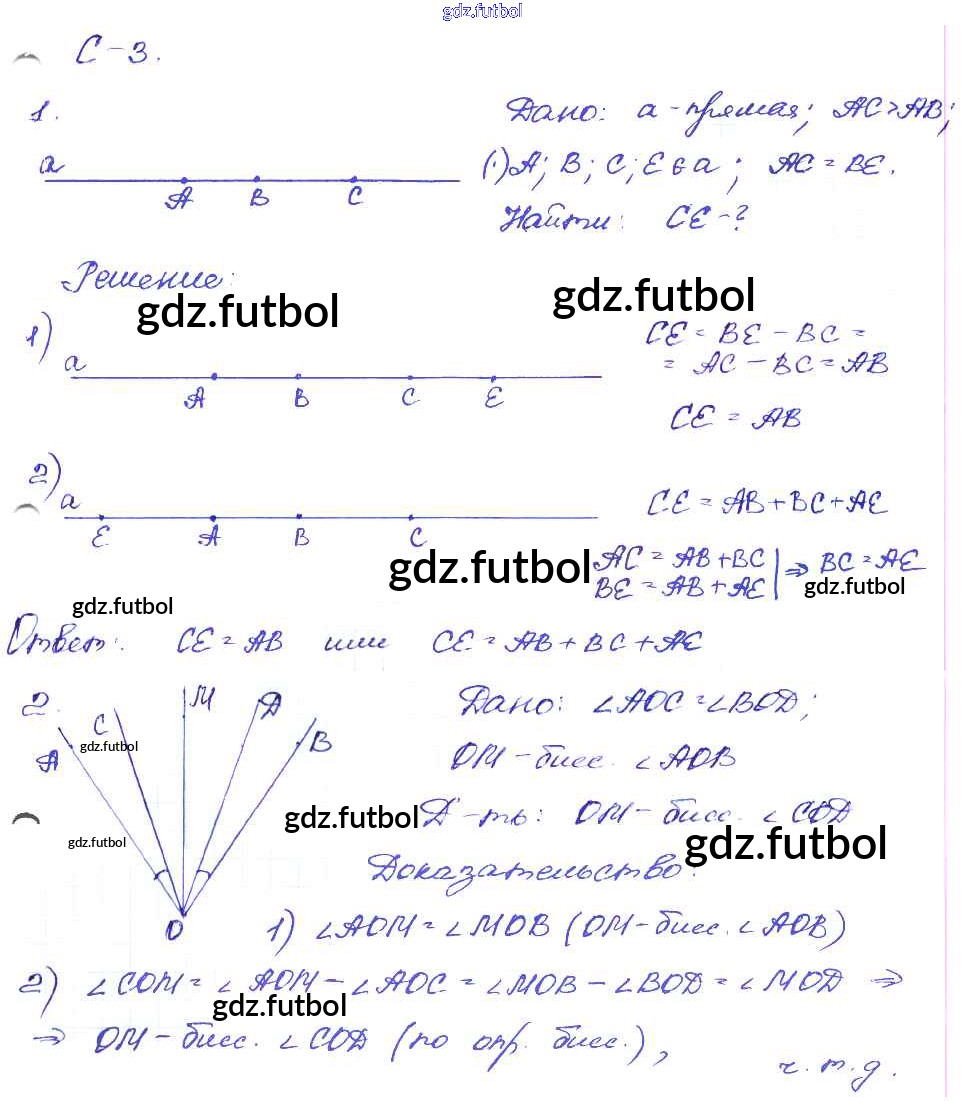 gdz.futbol
С-3.
1.
a
A B C
Дано: a - прямая; AC > AB;
(·) A; B; C; E ∈ a; AC = BE.
Найти: CE - ?
Решение:
gdz.futbol
gdz.futbol
1)
a
A B C E
CE = BE - BC =
= AC - BC = AB
CE = AB
2)
a
E A B C
CE = AB + BC + AE
gdz.futbol
AC = AB + BC
BE = AB + AE
⇒ BC = AE
gdz.futbol
gdz.futbol
Ответ: CE = AB или CE = AB + BC + AE
2.
A C M D B
O
gdz.futbol
gdz.futbol
Дано: ∠AOC = ∠BOD;
OM - бисс. ∠AOB
gdz.futbol
Д-ть: OM - бисс. ∠COD
gdz.futbol
Доказательство:
1) ∠AOM = ∠MOB (OM - бисс. ∠AOB)
2) ∠COM = ∠AOM - ∠AOC = ∠MOB - ∠BOD = ∠MOD ⇒
gdz.futbol
⇒ OM - бисс. ∠COD (по опр. бисс.),
ч.т.д.